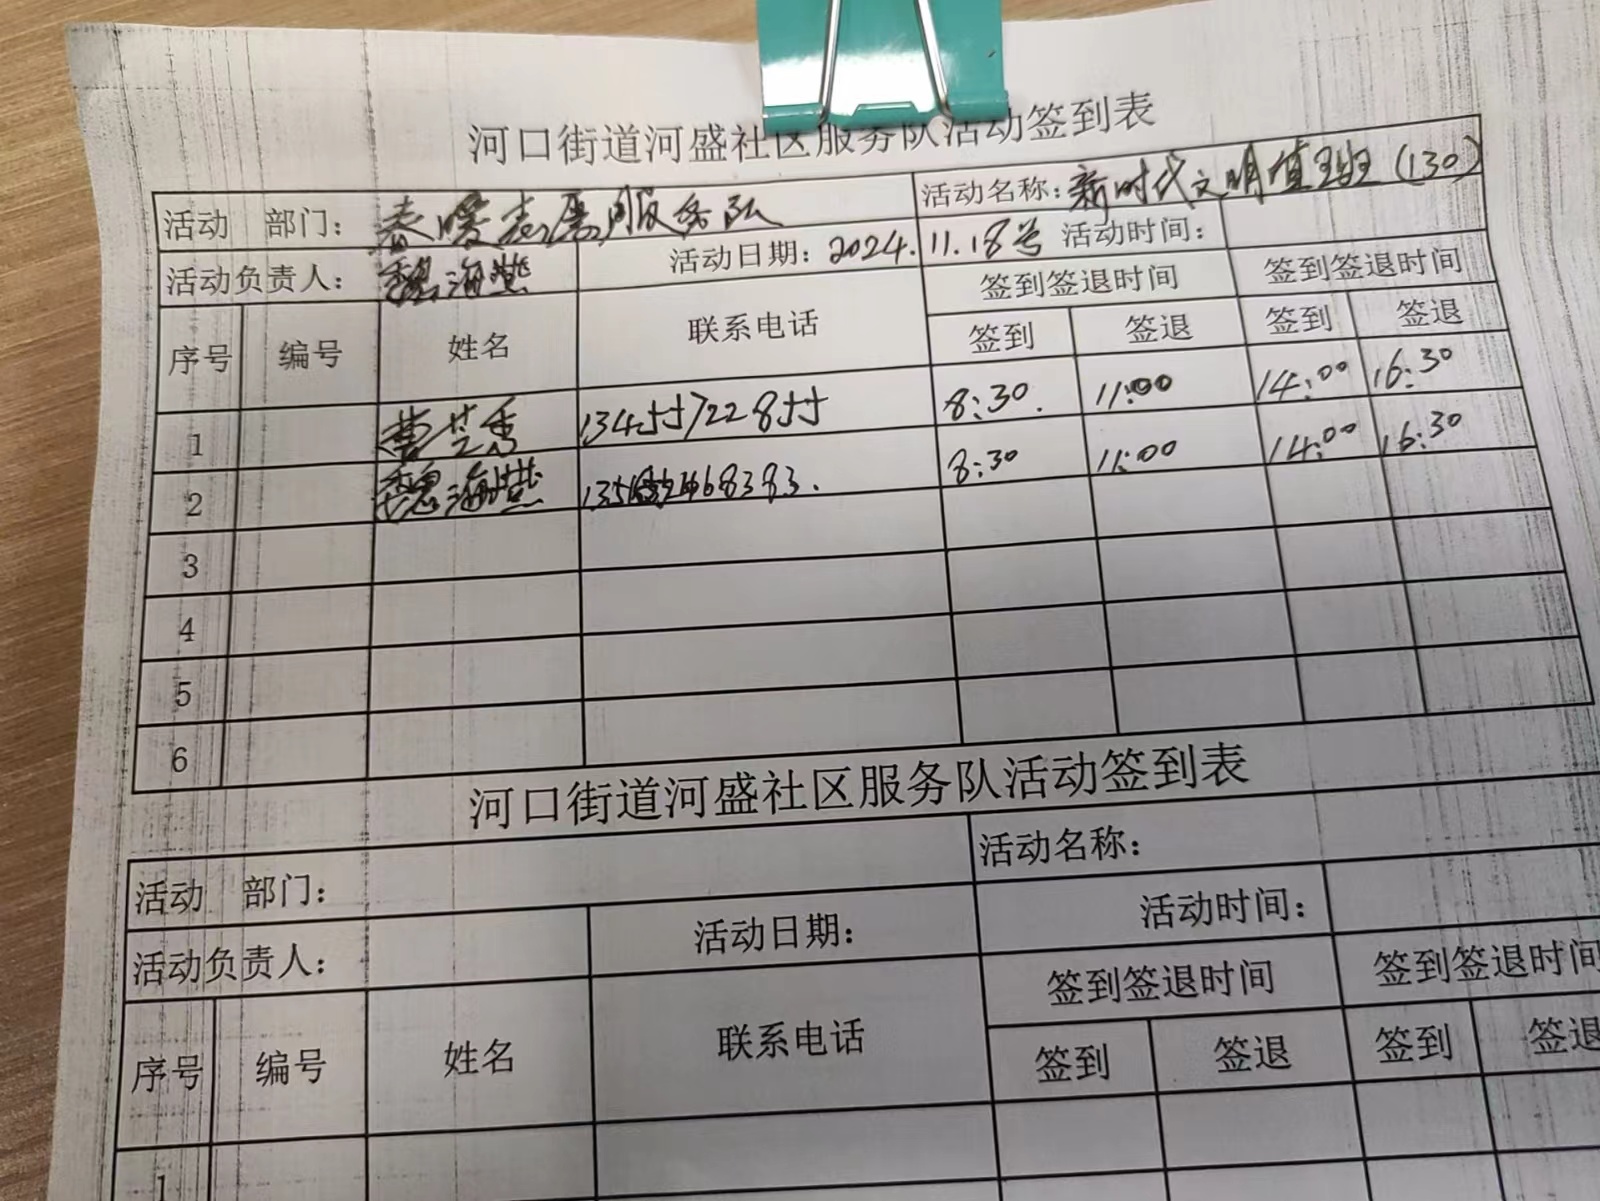 河口街道河盛社区服务队活动签到表
活动 部门：春暖志愿服务队 活动名称：新时代文明值班（130）
活动负责人：魏海燕 活动日期：2024.11.18号 活动时间：
序号 编号 姓名 联系电话 签到签退时间 签到签退时间
签到 签退 签到 签退
1 8:30. 11:00 14:00 16:30
2 魏海燕 8:30 11:00 14:00 16:30
3
4
5
6
河口街道河盛社区服务队活动签到表
活动 部门： 活动名称：
活动负责人： 活动日期： 活动时间：
序号 编号 姓名 联系电话 签到签退时间 签到签退时间
签到 签退 签到 签退
1